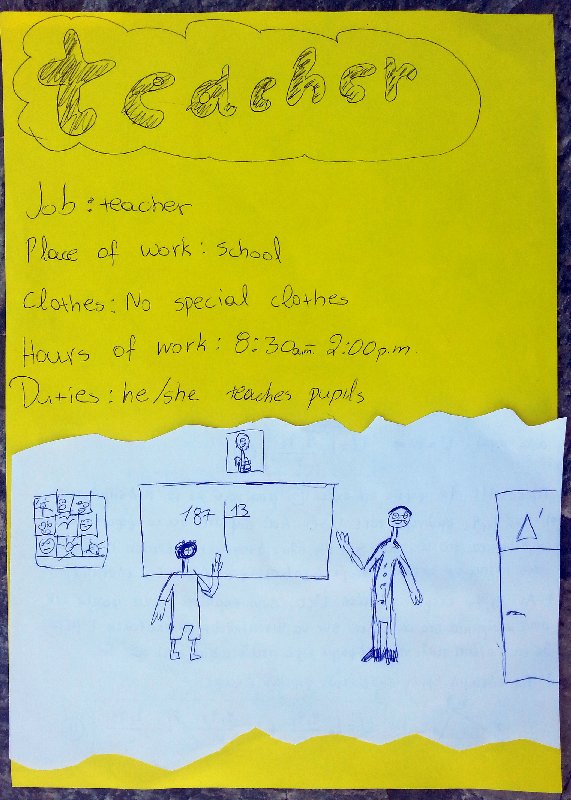 teacher
Job: teacher
Place of work: school
Clothes: No special clothes
Hours of work: 8:30am - 2:00p.m.
Duties: he/she teaches pupils
187 13
Δ'